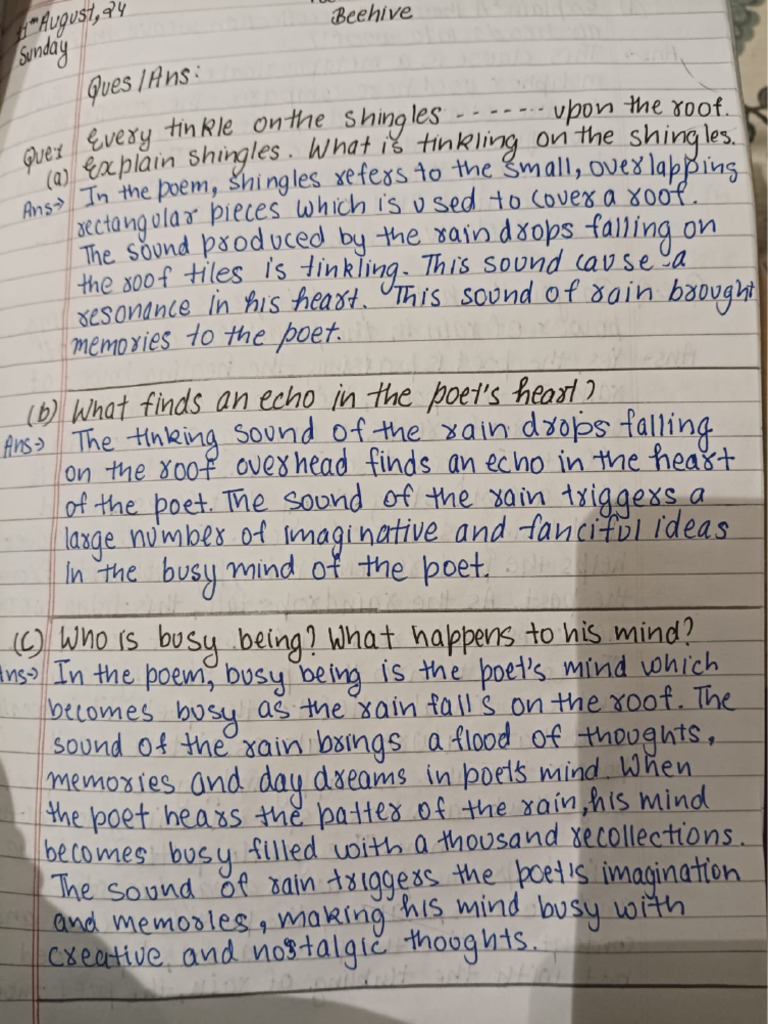 11th August, 24
Beehive
Sunday
Ques/Ans:
Ques Every tinkle on the shingles ------- upon the roof.
(a) Explain shingles. What is tinkling on the shingles.
Ans→ In the poem, shingles refers to the small, overlapping
rectangular pieces which is used to cover a roof.
The sound produced by the rain drops falling on
the roof tiles is tinkling. This sound cause a
resonance in his heart. This sound of rain brought
memories to the poet.
(b) What finds an echo in the poet's heart?
Ans→ The tinking sound of the rain drops falling
on the roof overhead finds an echo in the heart
of the poet. The sound of the rain triggers a
large number of imaginative and fanciful ideas
in the busy mind of the poet.
(C) Who is busy being? What happens to his mind?
Ans→ In the poem, busy being is the poet's mind which
becomes busy as the rain falls on the roof. The
sound of the rain brings a flood of thoughts,
memories and day dreams in poet's mind. When
the poet hears the patter of the rain, his mind
becomes busy filled with a thousand recollections.
The sound of rain triggers the poet's imagination
and memories, making his mind busy with
creative and nostalgic thoughts.